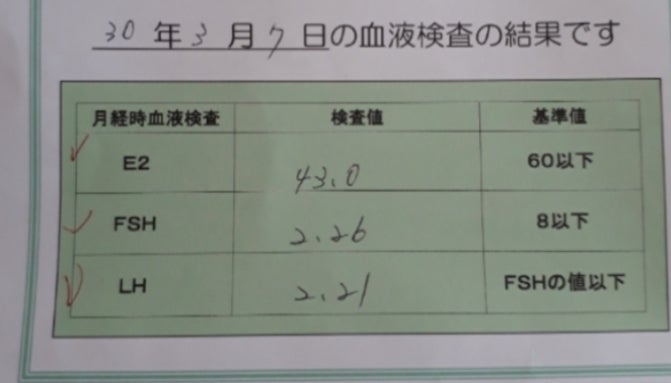 30年3月7日の血液検査の結果です
月経時血液検査 検査値 基準値
E2 43.0 60以下
FSH 2.26 8以下
LH 2.21 FSHの値以下